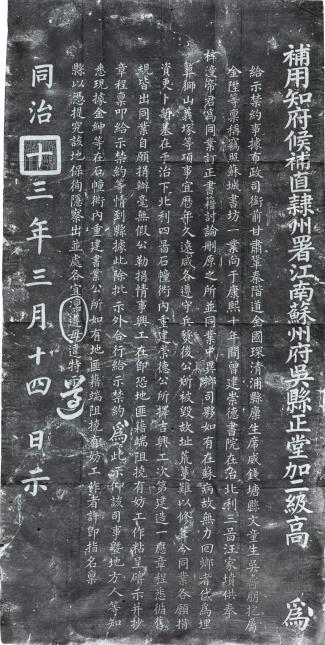 補用知府候補直隸州署江南蘇州府吳縣正堂加二級高　為
給示禁約事據布政司銜前甘肅鞏秦階道金國琛清浦縣廩生席威錢塘縣文童生吳
金陞等稟稱竊照蘇城書坊一業向于康熙十年間曾建崇德書院在治北利三啚汪家墳供奉
梓潼帝君為同業訂正書籍討論刪原之所並同業中異鄉司夥如有在蘇病故無力回鄉者代為埋
葬獅山義塚等項事宜歷年久遠咸各遵守兵燹後公所被毀故址荒蔓難以修葺今同業各願捐
資更卜新基在于治下北利四啚石幢衖內重建崇德公所擇吉興工次第建造一應章程悉循舊
規皆出同業自願捐辦毫無假公勒捐情事興工在即恐地匪藉端阻撓有妨工作粘呈碑示並抄
章程稟叩給示禁約等情到縣據此除批示外合行給示禁約為此示仰該司事暨地方人等知
悉現據金紳等在石幢衖內重建書業公所如有地匪藉端阻撓有妨工作者許即指名稟
縣以憑提究該地保徇隱察出並處各宜凜遵毋違特示遵
同治十三年三月十四日示